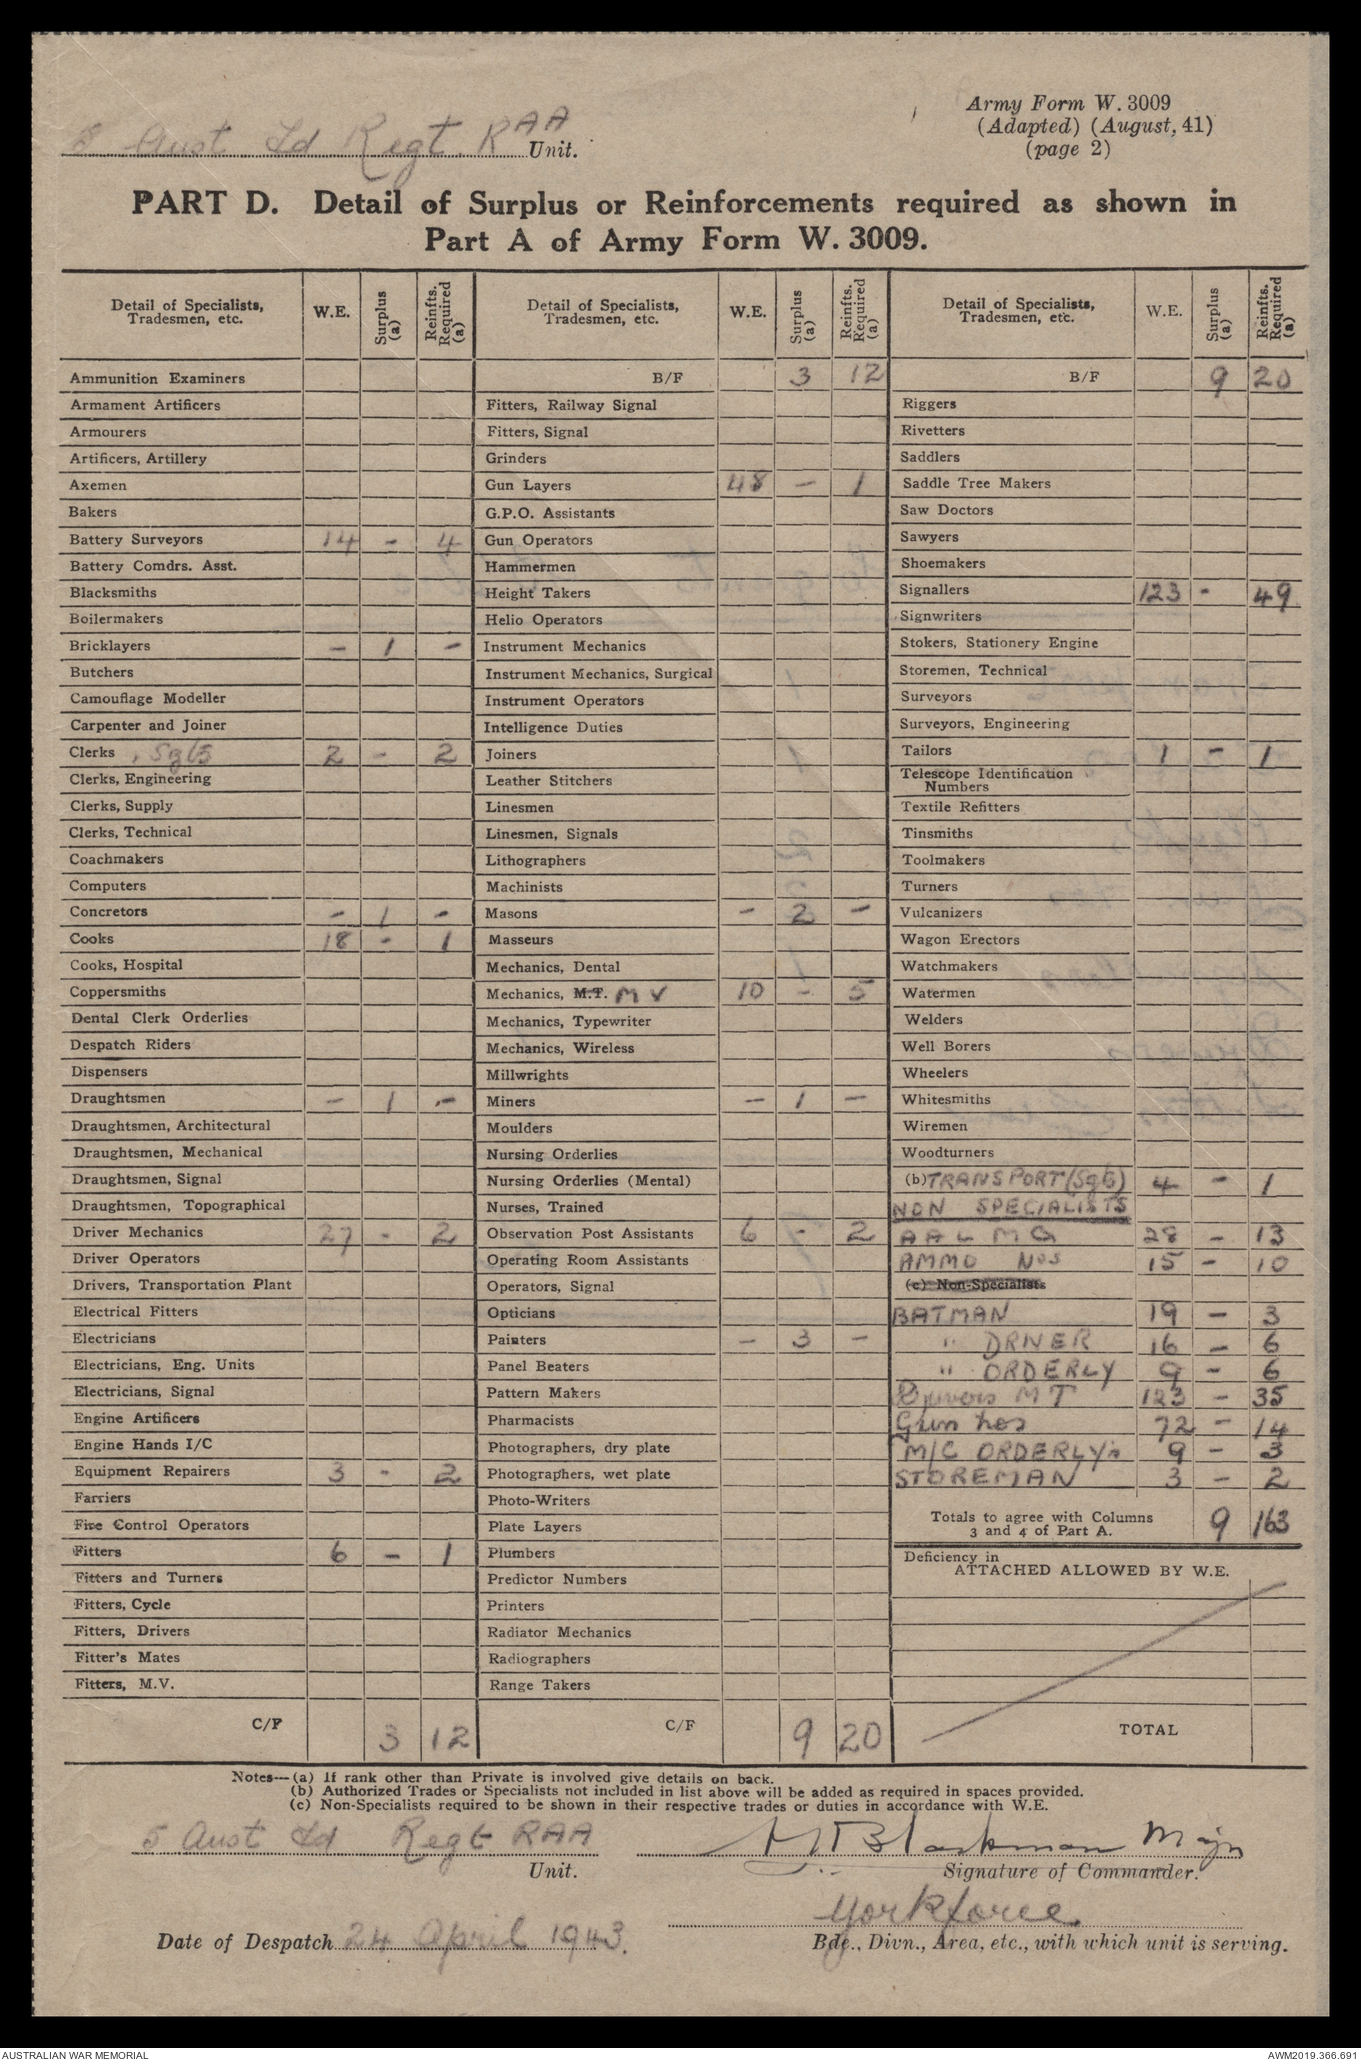 Army Form W. 3009
(Adapted) (August, 41)
(page 2)
5 Aust Fd Regt. RAA Unit.
PART D. Detail of Surplus or Reinforcements required as shown in
Part A of Army Form W. 3009.
Detail of Specialists, Tradesmen, etc. W.E. Surplus (a) Reinfts. Required (a)
Ammunition Examiners
Armament Artificers
Armourers
Artificers, Artillery
Axemen
Bakers
Battery Surveyors 14 - 4
Battery Comdrs. Asst.
Blacksmiths
Boilermakers
Bricklayers - 1 -
Butchers
Camouflage Modeller
Carpenter and Joiner
Clerks, Sgts 2 - 2
Clerks, Engineering
Clerks, Supply
Clerks, Technical
Coachmakers
Computers
Concretors - 1 -
Cooks 18 - 1
Cooks, Hospital
Coppersmiths
Dental Clerk Orderlies
Despatch Riders
Dispensers
Draughtsmen - 1 -
Draughtsmen, Architectural
Draughtsmen, Mechanical
Draughtsmen, Signal
Draughtsmen, Topographical
Driver Mechanics 27 - 2
Driver Operators
Drivers, Transportation Plant
Electrical Fitters
Electricians
Electricians, Eng. Units
Electricians, Signal
Engine Artificers
Engine Hands I/C
Equipment Repairers 3 - 2
Farriers
Fire Control Operators
Fitters 6 - 1
Fitters and Turners
Fitters, Cycle
Fitters, Drivers
Fitter's Mates
Fitters, M.V.
C/F 3 12
Detail of Specialists, Tradesmen, etc. W.E. Surplus (a) Reinfts. Required (a)
B/F 3 12
Fitters, Railway Signal
Fitters, Signal
Grinders
Gun Layers 48 - 1
G.P.O. Assistants
Gun Operators
Hammermen
Height Takers
Helio Operators
Instrument Mechanics
Instrument Mechanics, Surgical
Instrument Operators
Intelligence Duties
Joiners
Leather Stitchers
Linesmen
Linesmen, Signals
Lithographers
Machinists
Masons - 2 -
Masseurs
Mechanics, Dental
Mechanics, M.T. M V 10 - 5
Mechanics, Typewriter
Mechanics, Wireless
Millwrights
Miners - 1 -
Moulders
Nursing Orderlies
Nursing Orderlies (Mental)
Nurses, Trained
Observation Post Assistants 6 - 2
Operating Room Assistants
Operators, Signal
Opticians
Painters - 3 -
Panel Beaters
Pattern Makers
Pharmacists
Photographers, dry plate
Photographers, wet plate
Photo-Writers
Plate Layers
Plumbers
Predictor Numbers
Printers
Radiator Mechanics
Radiographers
Range Takers
C/F 9 20
Detail of Specialists, Tradesmen, etc. W.E. Surplus (a) Reinfts. Required (a)
B/F 9 20
Riggers
Rivetters
Saddlers
Saddle Tree Makers
Saw Doctors
Sawyers
Shoemakers
Signallers 123 - 49
Signwriters
Stokers, Stationery Engine
Storemen, Technical
Surveyors
Surveyors, Engineering
Tailors 1 - 1
Telescope Identification
Numbers
Textile Refitters
Tinsmiths
Toolmakers
Turners
Vulcanizers
Wagon Erectors
Watchmakers
Watermen
Welders
Well Borers
Wheelers
Whitesmiths
Wiremen
Woodturners
(b) TRANSPORT (Sgts) 4 - 1
NON SPECIALISTS
A A L M G 28 - 13
AMMO Nos 15 - 10
(c) Non-Specialists
BATMAN 19 - 3
" DRIVER 16 - 6
" ORDERLY 9 - 6
Drivers M T 123 - 35
Gun nos 72 - 14
M/C ORDERLY'S 9 - 3
STOREMAN 3 - 2
Totals to agree with Columns
3 and 4 of Part A. 9 163
Deficiency in
ATTACHED ALLOWED BY W.E.
TOTAL
Notes—(a) If rank other than Private is involved give details on back.
(b) Authorized Trades or Specialists not included in list above will be added as required in spaces provided.
(c) Non-Specialists required to be shown in their respective trades or duties in accordance with W.E.
5 Aust Fd Regt RAA
Unit.
Blackman Major
Signature of Commander.
Yorkforce.
Date of Despatch 24 April 1943.
Bde., Divn., Area, etc., with which unit is serving.
AUSTRALIAN WAR MEMORIAL
AWM2019.366.691